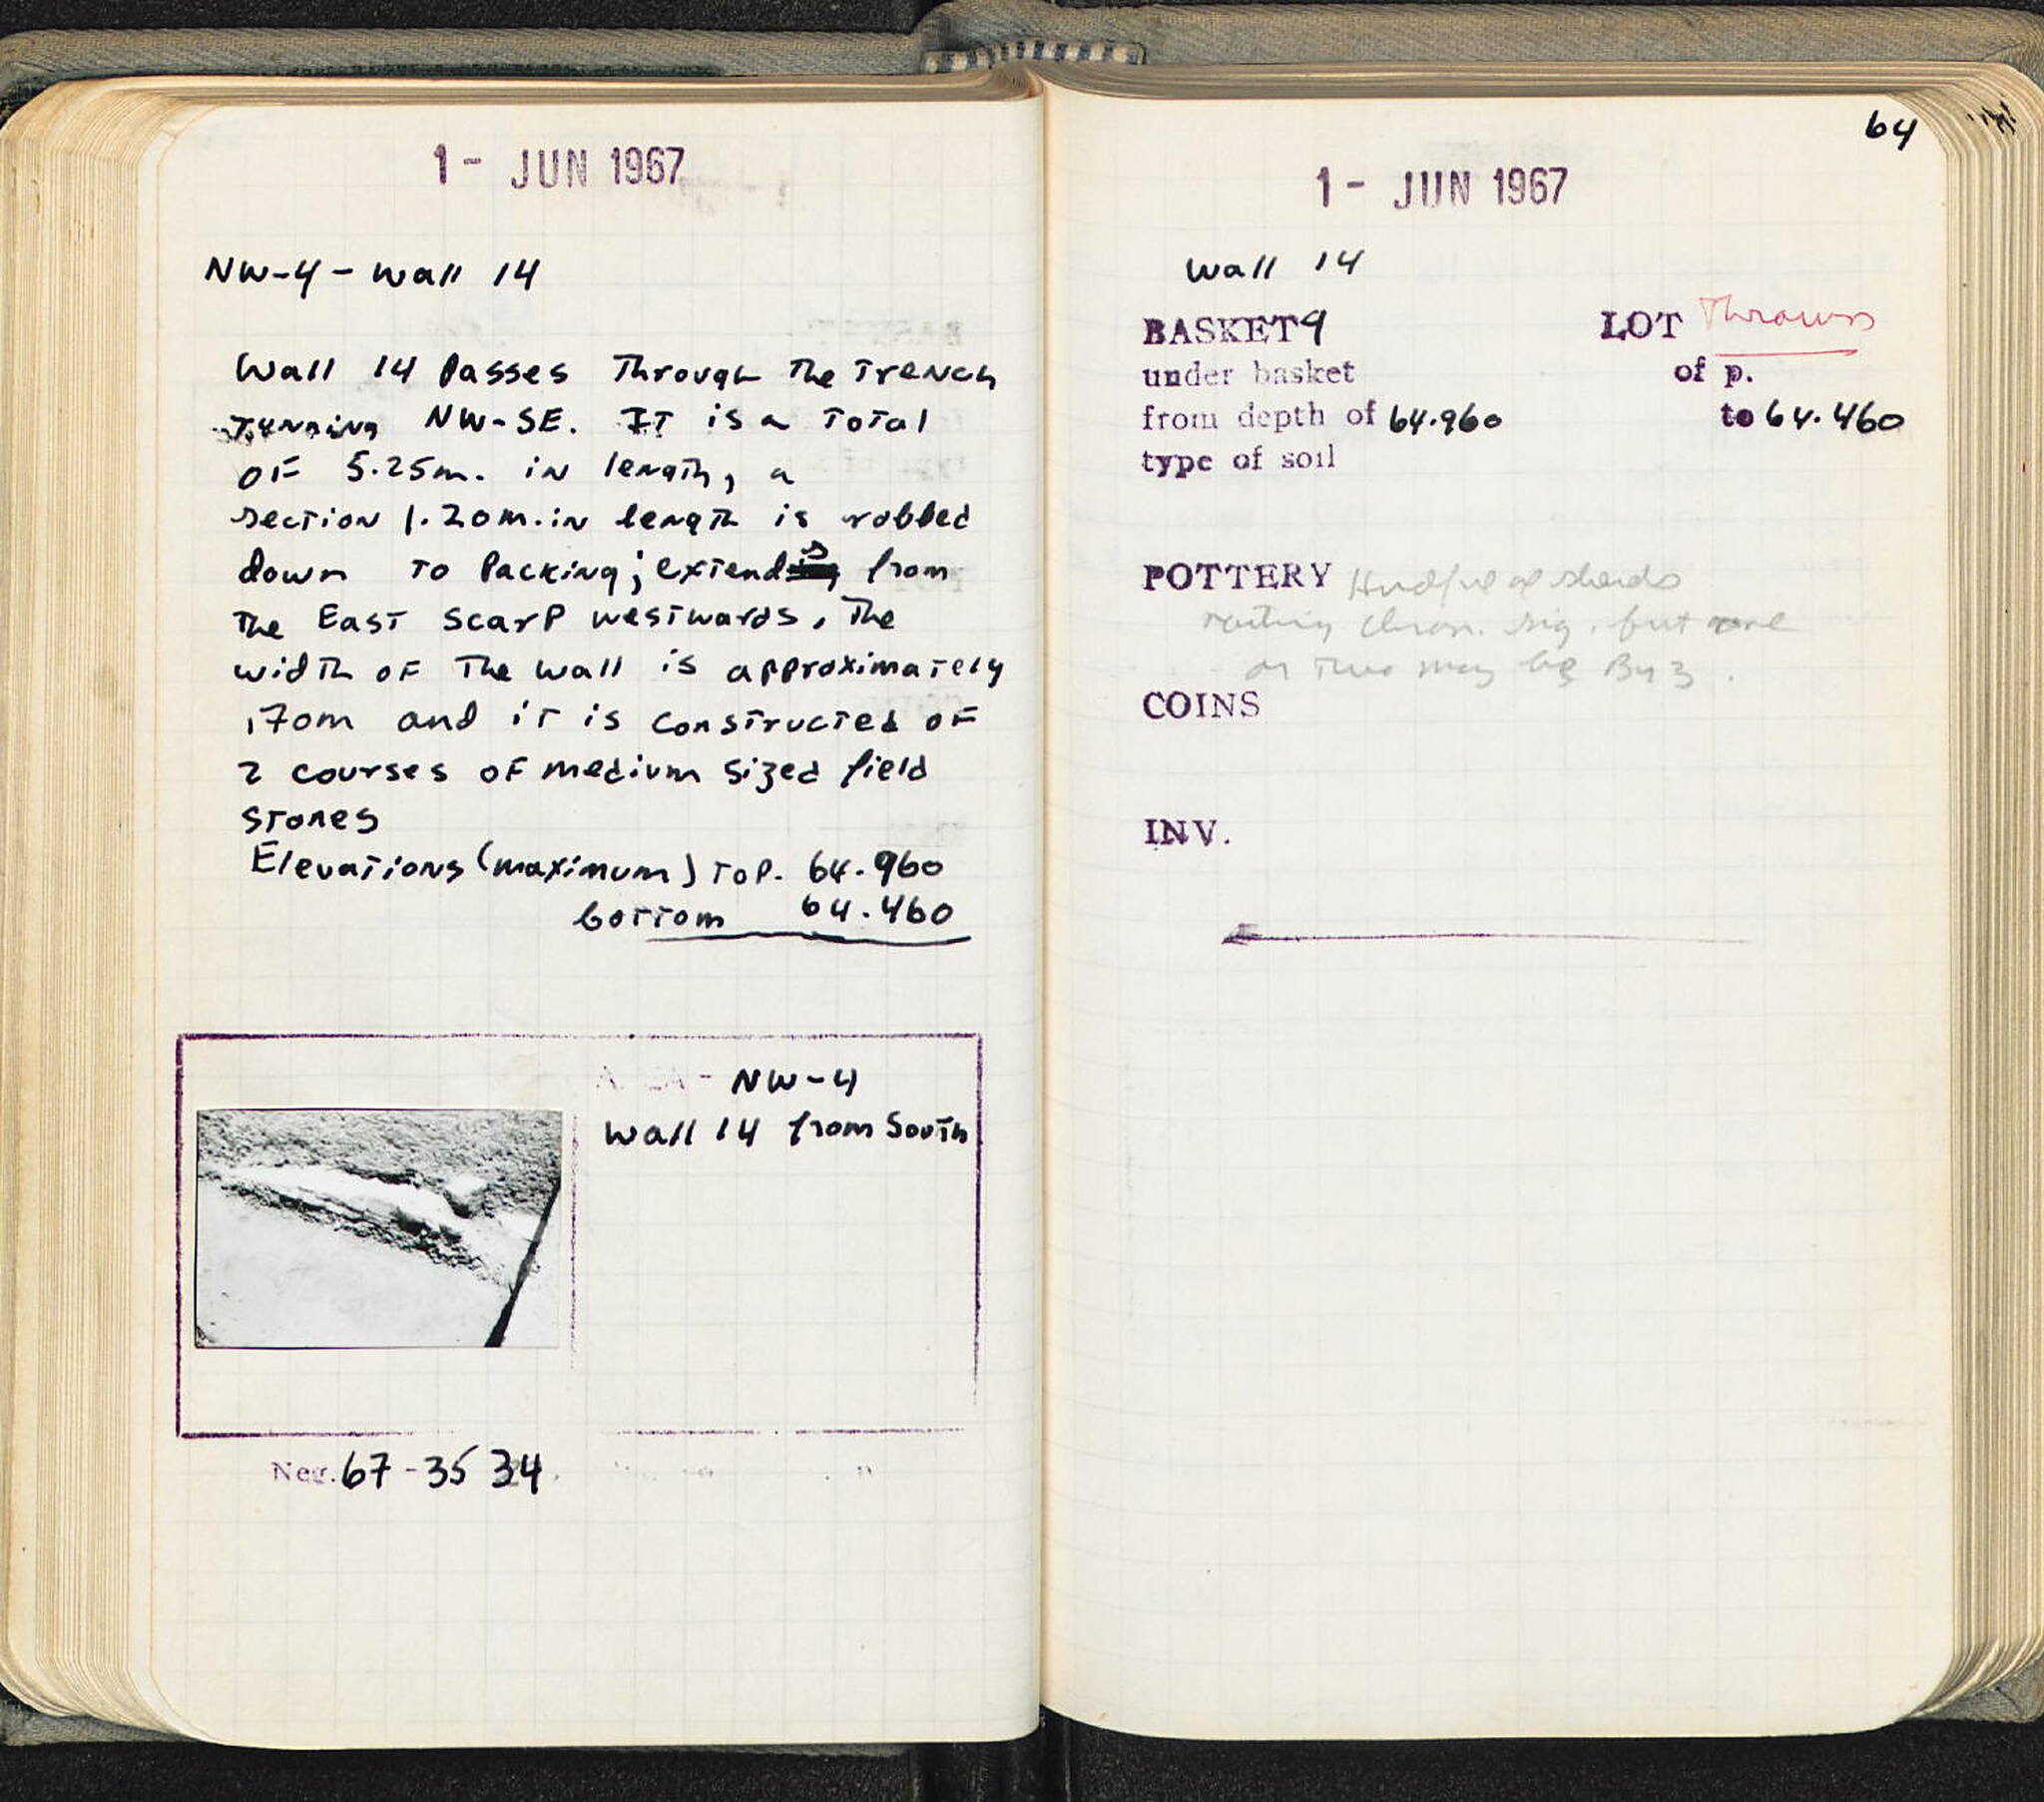 1 - JUN 1967
NW-4 - Wall 14
Wall 14 Passes Through The Trench
running NW-SE. IT is a ToTal
OF 5.25m. in length, a
section 1.20m. in length is robbed
down To Packing; extends from
The EasT scarP westwards. The
width of The wall is approximately
.70m and iT is constructed of
2 courses of medium sized field
stones
Elevations (maximum) ToP. 64.960
boTTom 64.460
AREA - NW-4
Wall 14 from South
Neg. 67-35 34
64
1 - JUN 1967
Wall 14
BASKET 9 LOT Thrown
under basket of p.
from depth of 64.960 to 64.460
type of soil
POTTERY Handful of sherds
nothing chron. sig. but one
or two may be Byz.
COINS
INV.